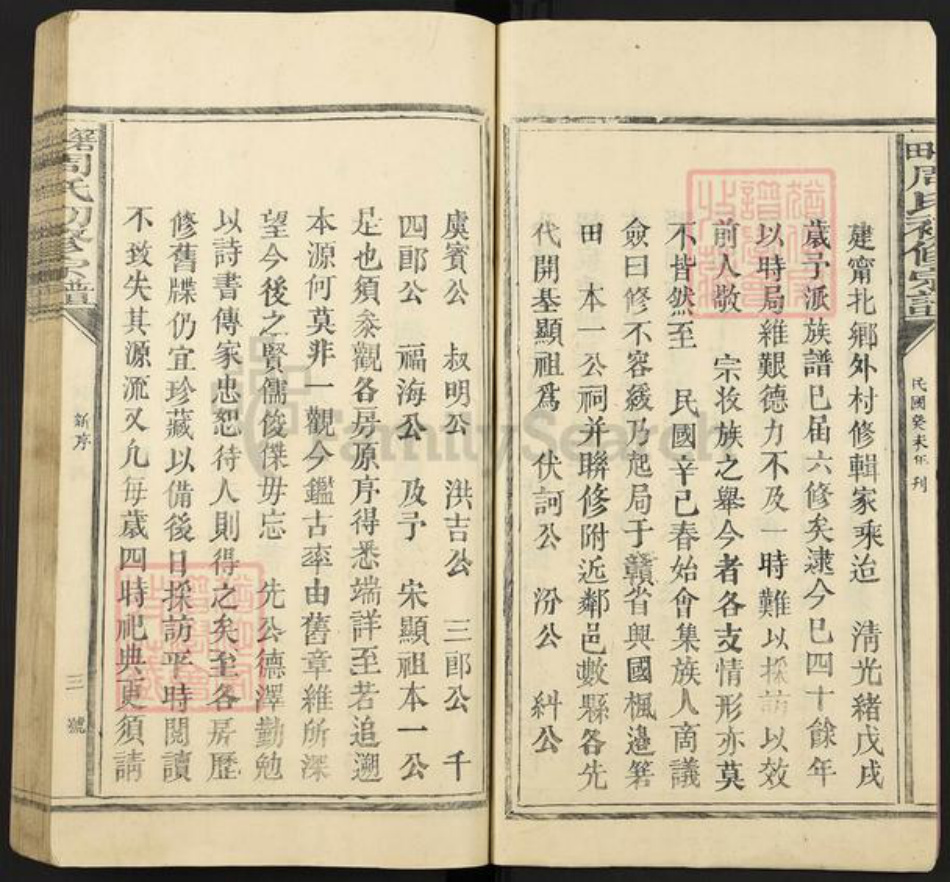 建甯北鄉外村修輯家乘迨 淸光緒戊戌
歲予派族譜已届六修矣逮今已四十餘年
以時局維艱德力不及一時難以採訪以效
前人敬 宗收族之舉今者各支情形亦莫
不皆然至 民國辛巳春始會集族人商議
僉曰修不容緩乃起局于贛省興國楓邊箬
田 本一公祠并聯修附近鄰邑數縣各先
代開基顯祖爲 伏訶公 汾公 糾公
民國癸未年刊
虞賓公 叔明公 洪吉公 三郎公 千
四郎公 福海公 及予 宋顯祖本一公
是也須叅觀各房原序得悉端詳至若追遡
本源何莫非一觀今鑑古率由舊章維所深
望今後之賢儒俊傑毋忘 先公德澤勤勉
以詩書傳家忠恕待人則得之矣至各房歷
修舊牒仍宜珍藏以備後日採訪平時閱讀
不致失其源流又凡每歲四時祀典更須請
新序
三號
FamilySearch